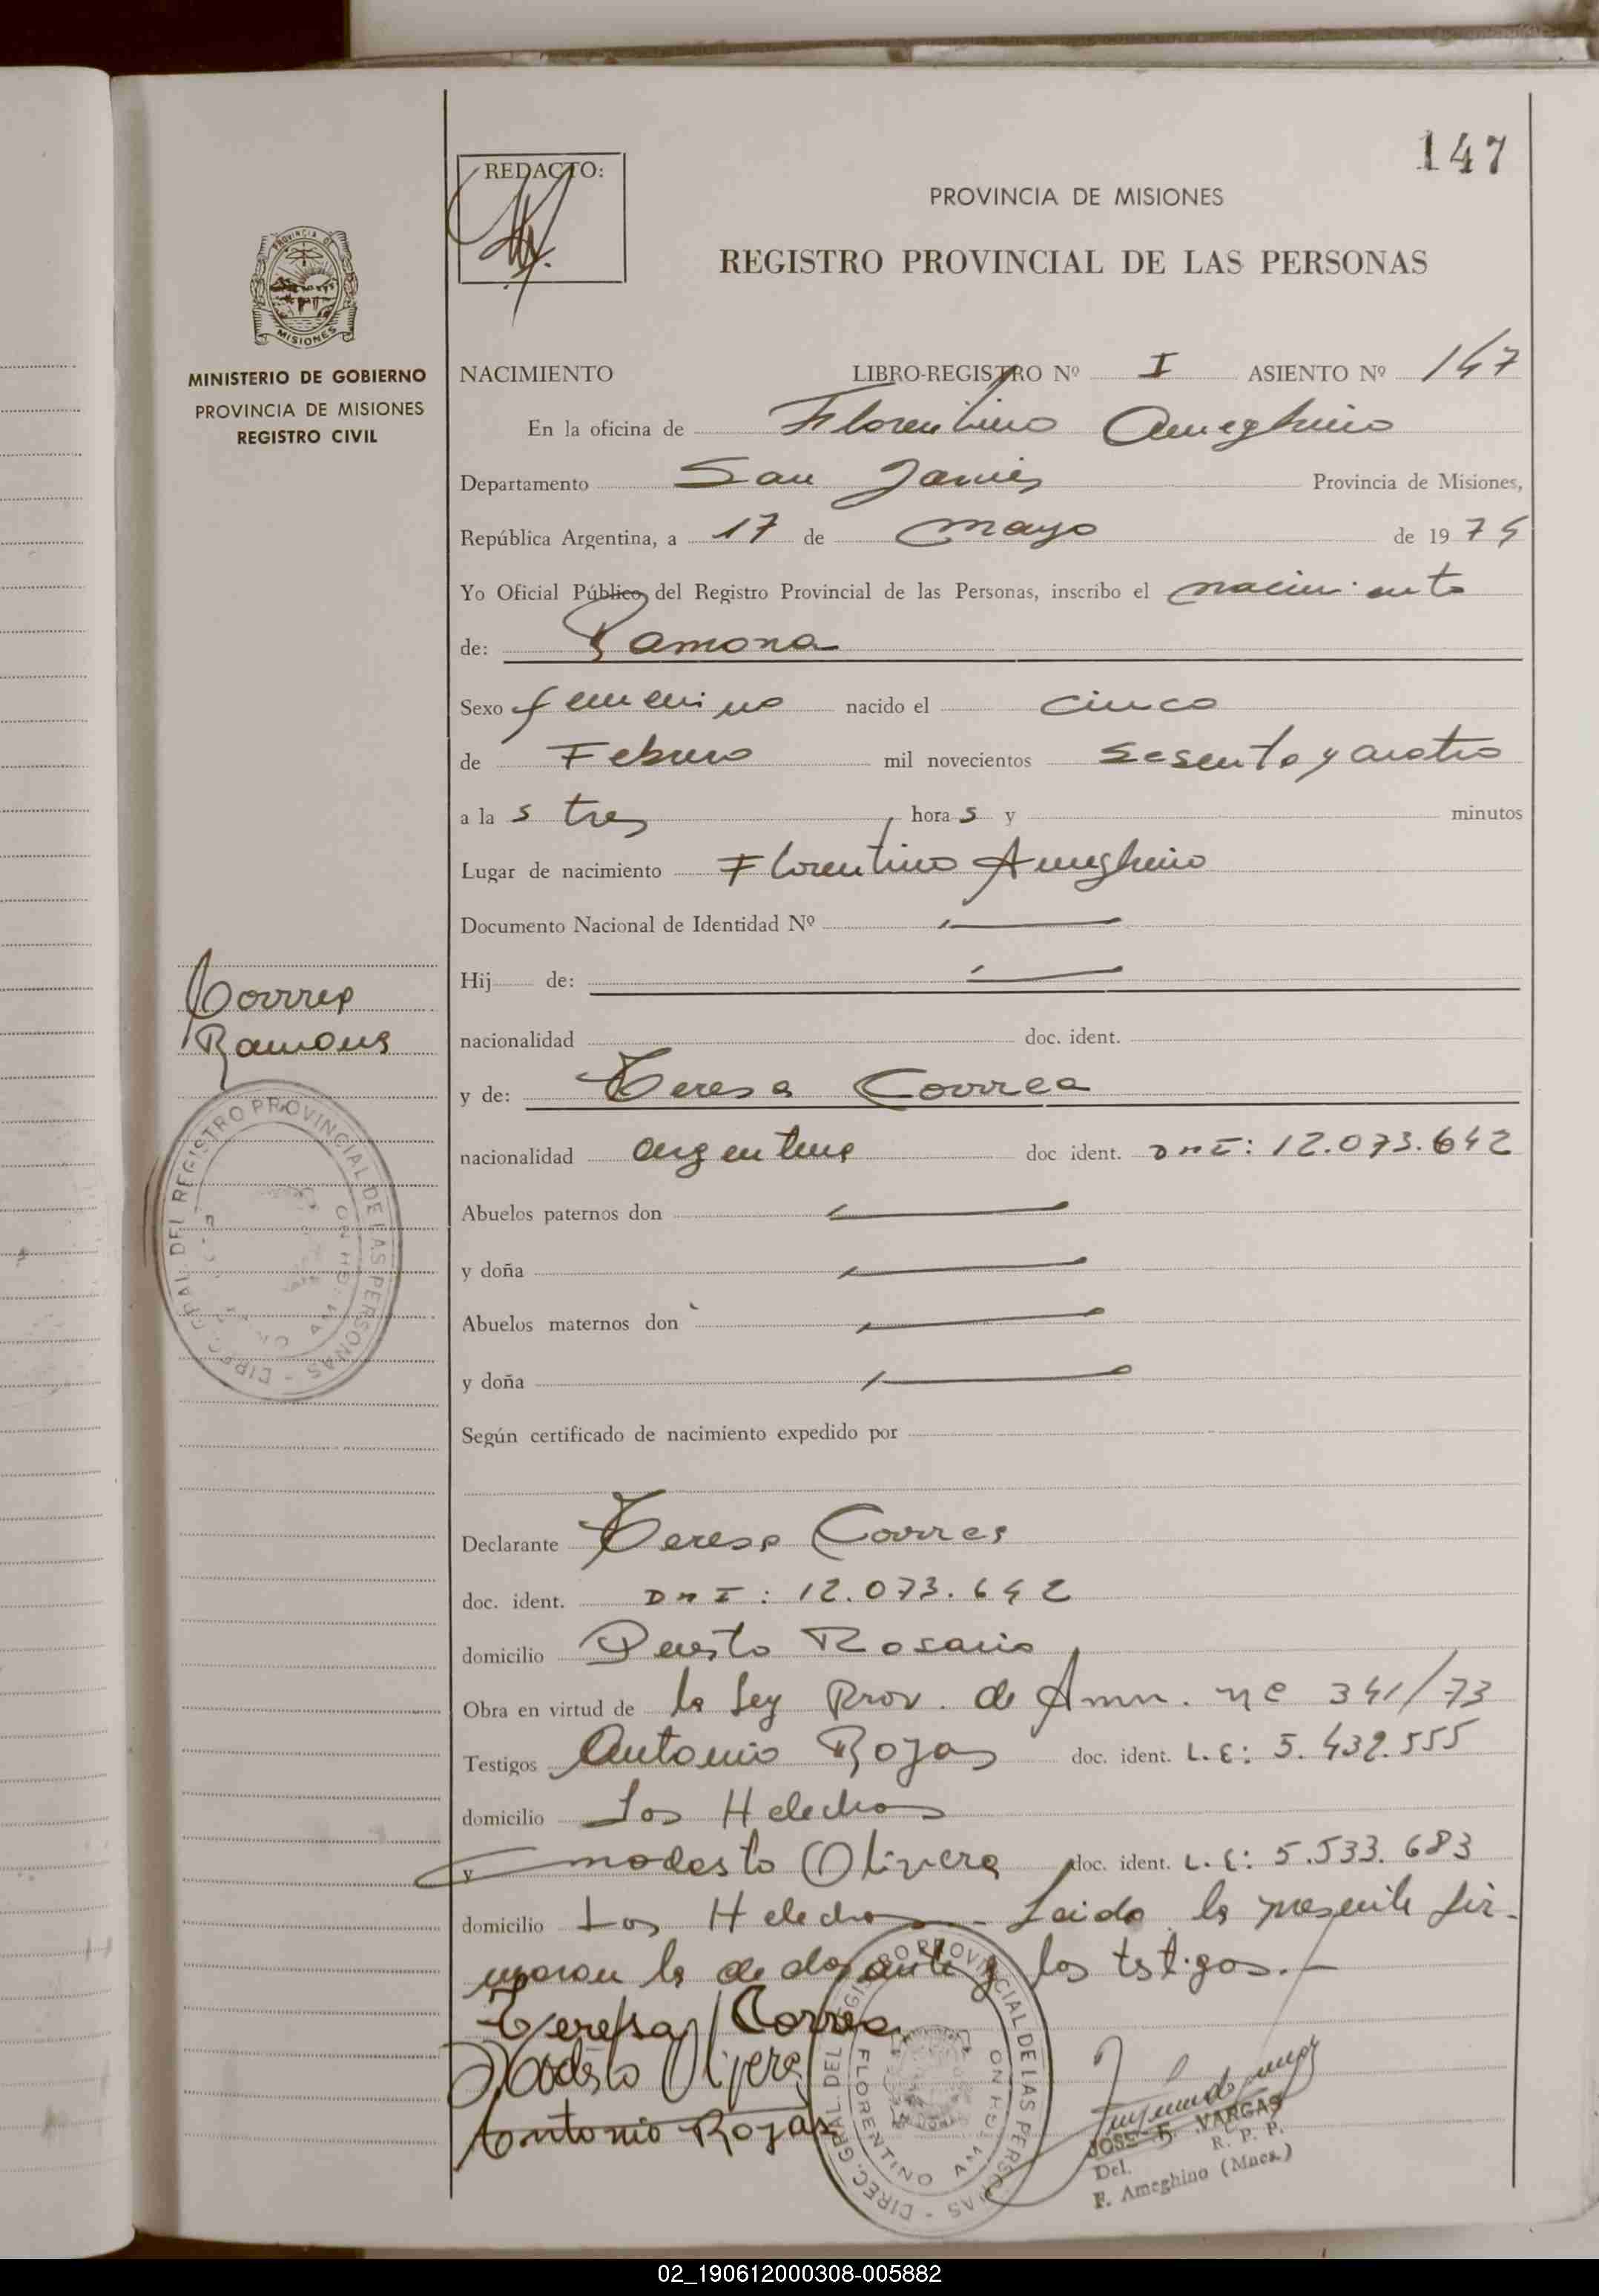 147
REDACTO:
PROVINCIA DE MISIONES
REGISTRO PROVINCIAL DE LAS PERSONAS
PROVINCIA DE
MISIONES
MINISTERIO DE GOBIERNO
PROVINCIA DE MISIONES
REGISTRO CIVIL
NACIMIENTO LIBRO-REGISTRO Nº I ASIENTO Nº 147
En la oficina de Florentino Ameghino
Departamento San Javier Provincia de Misiones,
República Argentina, a 17 de mayo de 19 74
Yo Oficial Público del Registro Provincial de las Personas, inscribo el nacimiento
de: Ramona
Sexo femenino nacido el cinco
de Febrero mil novecientos sesenta y cuatro
a la s tres hora s y minutos
Lugar de nacimiento Florentino Ameghino
Documento Nacional de Identidad Nº —
Hij de: —
Correa
Ramona
nacionalidad doc. ident.
y de: Teresa Correa
nacionalidad argentina doc ident. DNI: 12.073.642
Abuelos paternos don —
y doña —
Abuelos maternos don —
y doña —
DIREC. GRAL. DEL REGISTRO PROVINCIAL DE LAS PERSONAS
Según certificado de nacimiento expedido por
Declarante Teresa Correa
doc. ident. DNI: 12.073.642
domicilio Puerto Rosario
Obra en virtud de la Ley Prov. de Amn. Nº 341/73
Testigos Antonio Rojas doc. ident. L.E: 5.432.555
domicilio Los Helechos
y Modesto Olivera doc. ident. L.E: 5.533.683
domicilio Los Helechos - Leida la presente fir-
maron la declarante y los testigos. —
Teresa Correa
Modesto Olivera
Antonio Rojas
DIREC. GRAL. DEL REGISTRO PROVINCIAL DE LAS PERSONAS
FLORENTINO AMEGHINO
VARGAS
R. P. P.
Del.
F. Ameghino (Mnes.)
02_190612000308-005882